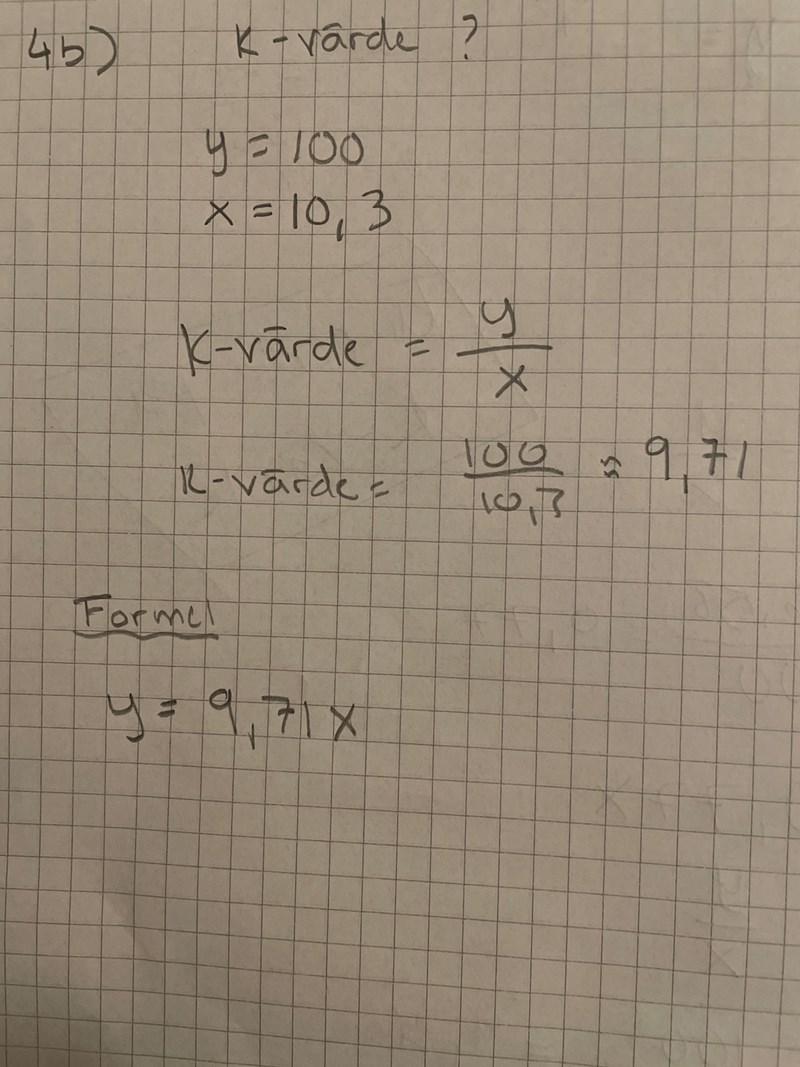 4b) K-värde ?
y = 100
x = 10,3
K-värde = y/x
K-värde = 100/10,3 ≈ 9,71
Formel
y = 9,71x